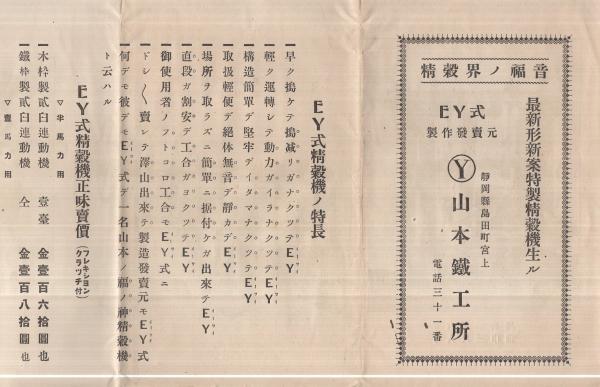 精穀界ノ福音
最新形新案特製精穀機生ル
EY式
製作發賣元
Y
靜岡縣島田町宮上
山本鐵工所
電話三十一番
EY式精穀機ノ特長
一早ク搗ケテ搗減リガナクツテEY
一輕ク運轉シテ動力ガイラナクツテEY
一構造簡單デ堅牢デイタマナクツテEY
一取扱輕便デ絕体無音デ靜カデEY
一場所ヲ取ラズニ簡單ニ据付ケガ出來テEY
一直段ガ割安デ工合ガヨクツテEY
一御使用者ノフトコロ工合モEY式ニ
一ドシ〱賣レテ澤山出來テ製造發賣元モEY式
一何デモ彼デモEY式デ一名山本ノ福ノ神精穀機
ト云ハル
EY式精穀機正味賣價(フレキション クラッチ付)
一木枠製貳臼連動機 壹臺 金壹百六拾圓也
▽半馬力用
一鐵枠製貳臼連動機 仝 金壹百八拾圓也
▽壹馬力用